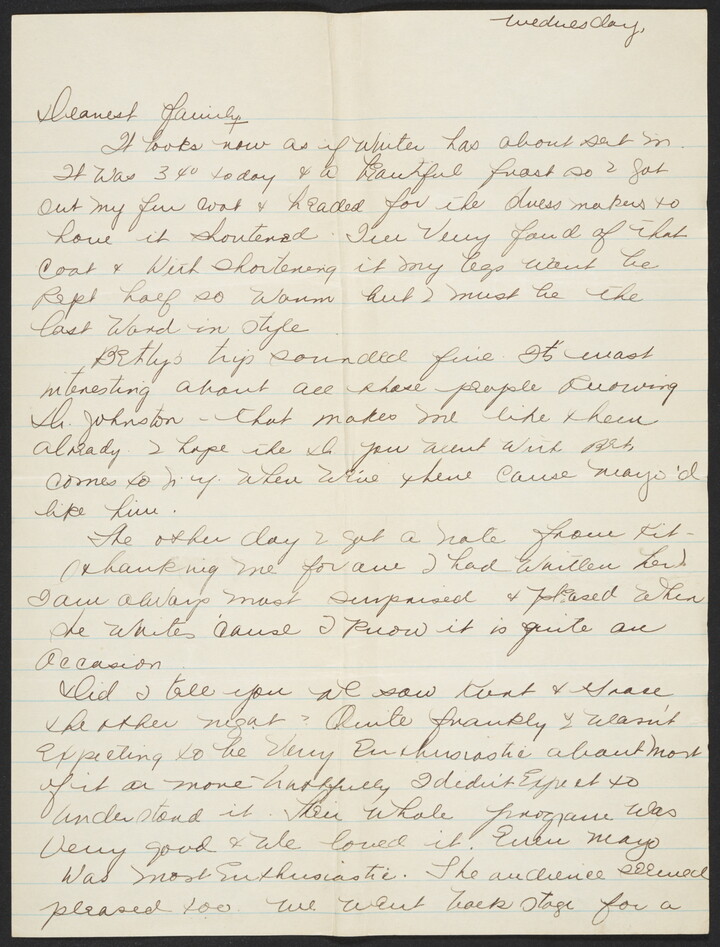 Wednesday,
Dearest family
It looks now as if Winter has about set in.
It was 34° today & a beautiful frost so I got
out my fur coat & headed for the dress makers to
have it shortened. I'm very fond of that
coat & with shortening it my legs wont be
kept half so warm but I must be the
last word in style
Betty's trip sounded fine. It's most
interesting about all those people knowing
Dr. Johnston - that makes me like them
already. I hope the Dr you went with Bet,
comes to N.Y. when we're there cause Mayo'd
like him.
The other day I got a note from Kit -
(thanking me for one I had written her)
I am always most surprised & pleased when
she writes 'cause I know it is quite an
occasion
Did I tell you we saw Kurt & Grace
the other night? Quite frankly I wasn't
expecting to be very enthusiastic about most
of it or more truthfully I didn't expect to
understand it. Their whole program was
very good & we loved it. Even Mayo
was most enthusiastic. The audience seemed
pleased too. We went back stage for a